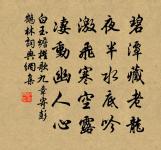 碧潭藏老龍
夜半水底吟
激飛寒空露
淒動幽人心
白玉蟾櫂歌九章寄彭
鶴林詞典網集